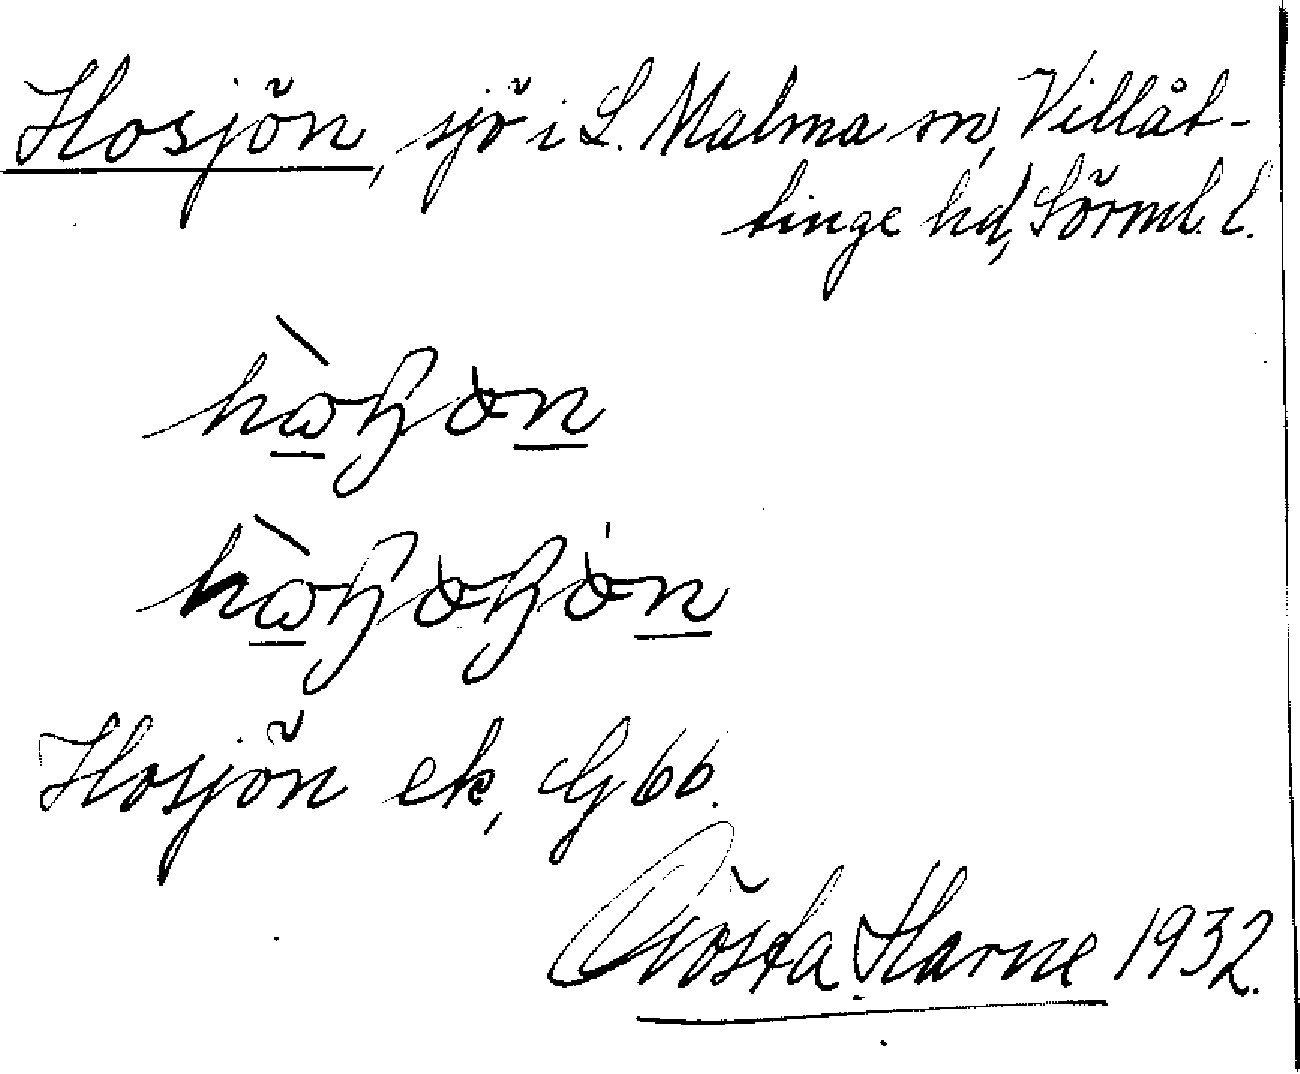 Hosjön, sjö i L. Malma sn, Villåt-
tinge hd, Sörml. l.
Hosjön ek, G 66.
Gösta Harne 1932.